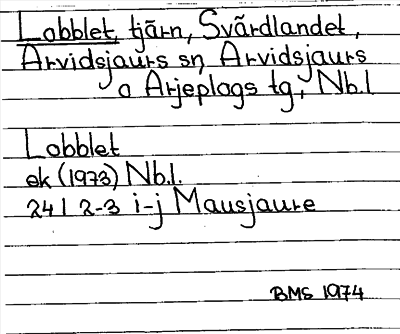 Lobblet, tjärn, Svärdlandet,
Arvidsjaurs sn, Arvidsjaurs
o Arjeplogs tg, Nb.l
Lobblet
ek (1973) Nb.l.
24 I 2-3 i-j Mausjaure
BMS 1974